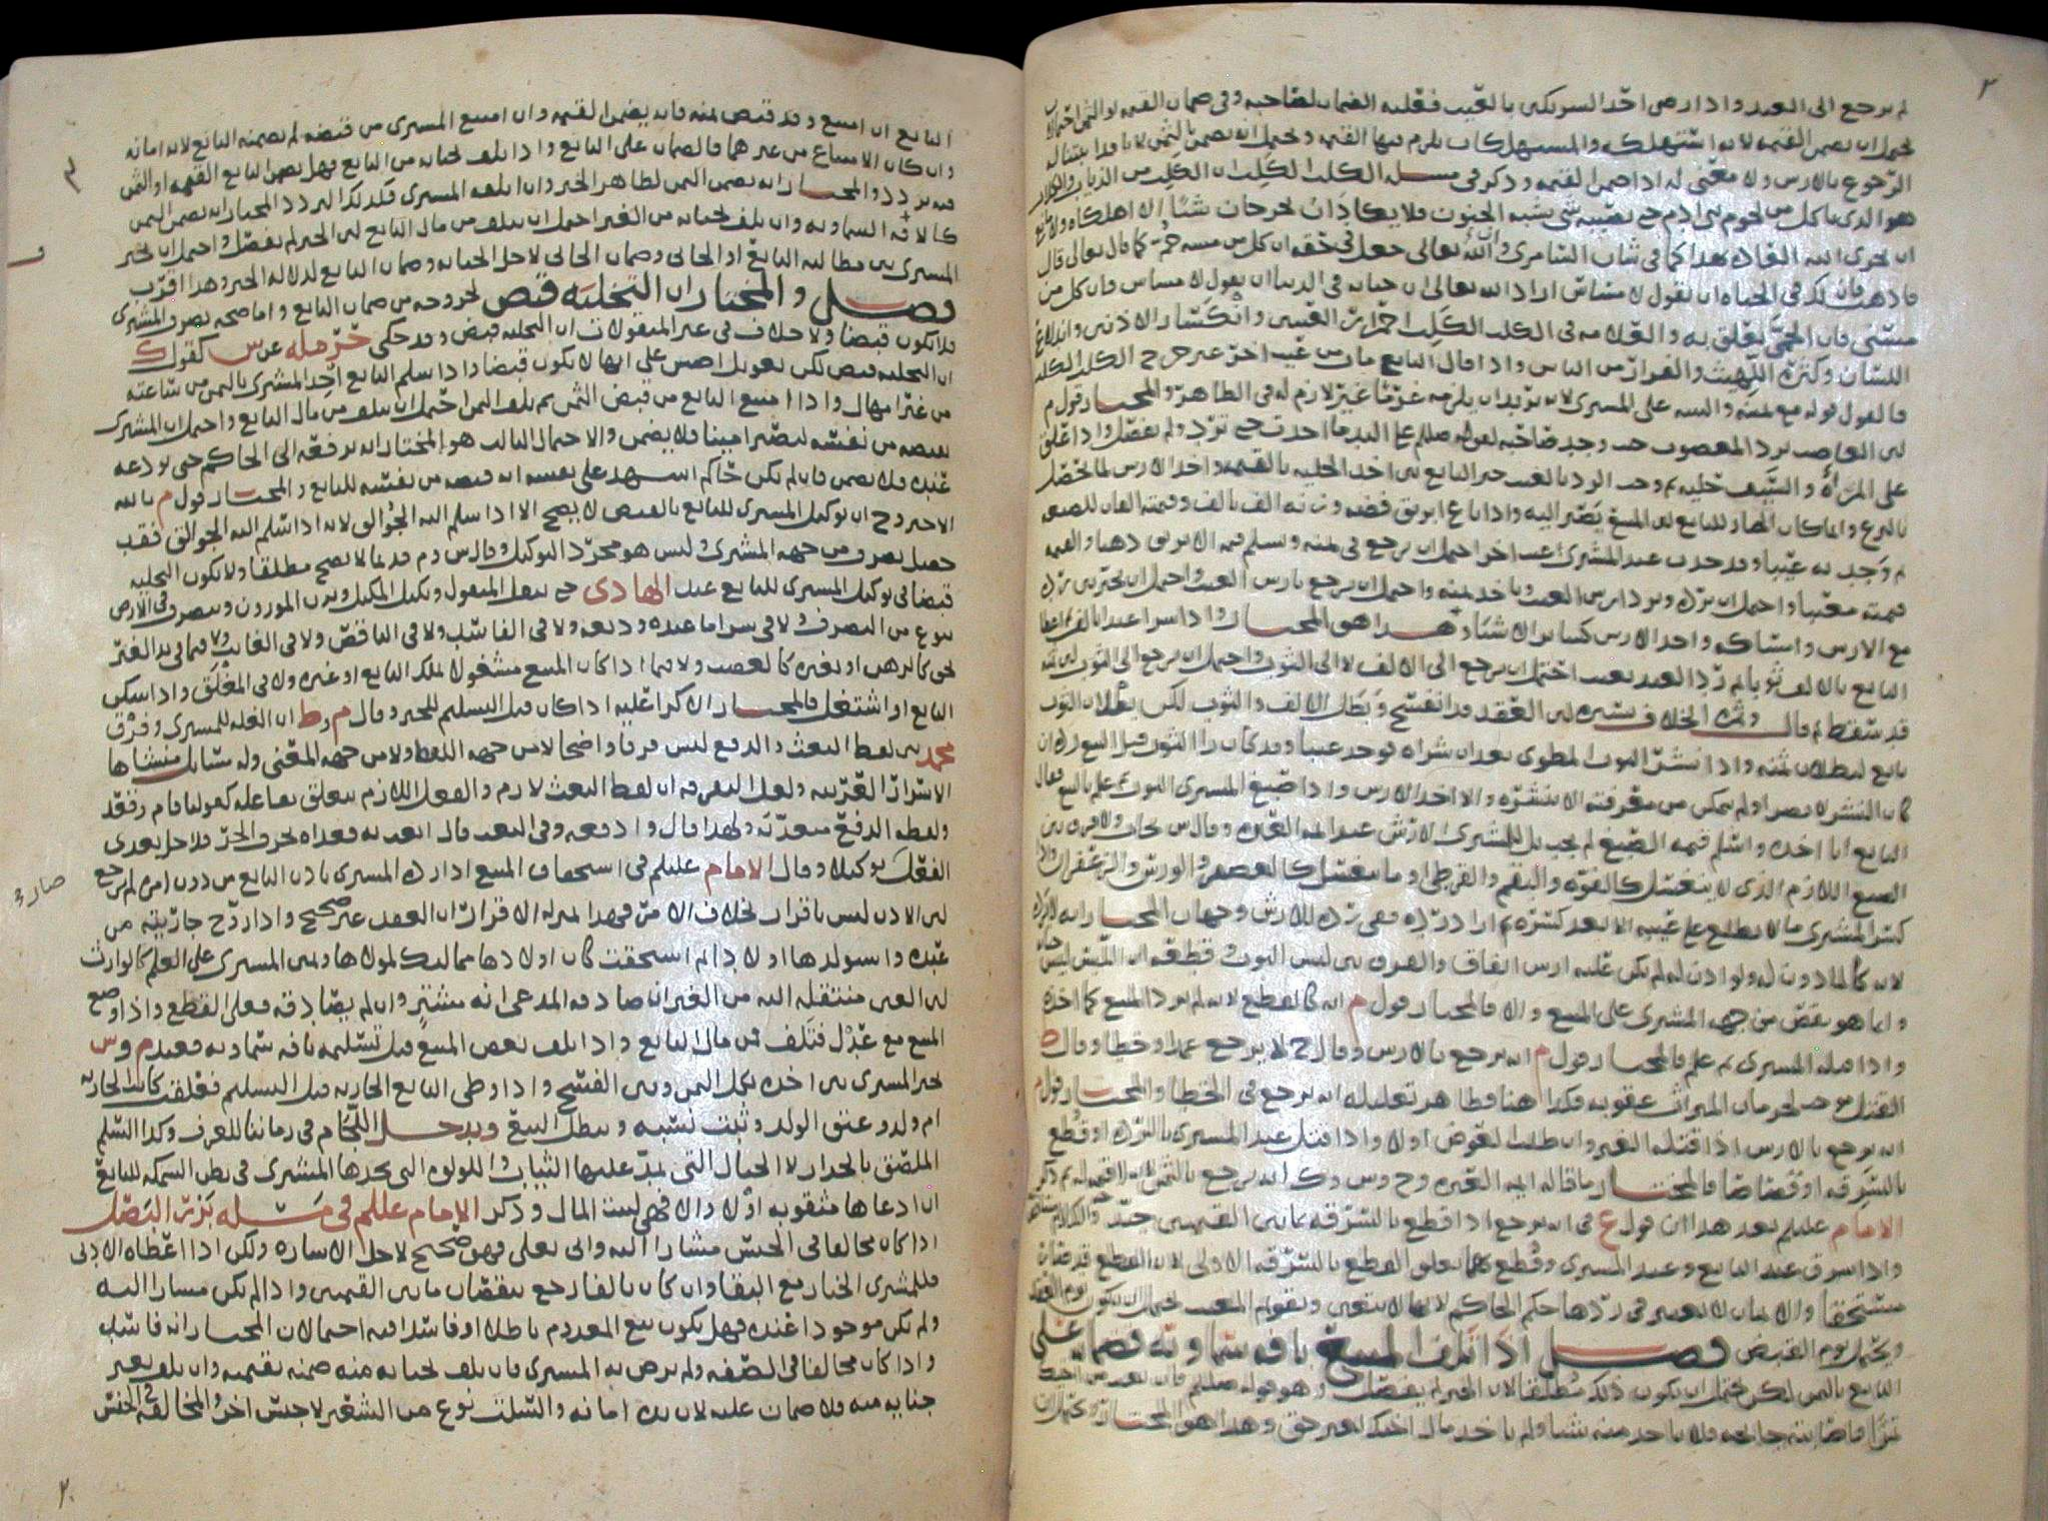 ٢
لم يرجع الى العبد واذا رضي احد الشريكين بالعيب فعليه الضمان لصاحبه وفي ضمان القيمة او الثمن احتمالان
يحتمل ان يضمن القيمة لانه استهلكه والمستهلكات يلزم فيها القيمة ويحتمل انه يضمن بالثمن
الرجوع بالارش ولا معنى له اذا ضمن القيمة وذكر في مسله الكلب الكَلِب ان الكلب من الذياب والكلاب
هو الذي ياكل من لحوم بني ادم حتى يصيبه شي يشبه الجنون فلا يكاد ان يجرحان شيئا الا اهلكاه
ان يجري الله العاده بهذا كما في شان السامري وان الله تعالى جعل في حقه ان كل من مسه حُمّ كما قال تعالى قال
فاذهب فان لك في الحياه ان تقول لا مساس اراد الله تعالى ان حياته في الدنيا ان يقول لا مساس فان كل من
مسني فان الحمى تعلق به والعلامه في الكلب الكَلِب احمرار العينين وانكسار الاذنين واندلاع
اللسان وكثرة اللهيث والفرار من الناس واذا قال البايع مات من عيب اخر غير جرح الكلب الكلب
فالقول قوله مع يمينه والبينه على المشتري لانه يريد ان يلزمه غرما غير لازم له في الظاهر والمختار قول م
ان الغاصب يرد المغصوب حيث وجد صاحبه لقوله صللم على اليد ما اخذت حتى ترد ولم يفصل واذا اطلع
على المرآة والسيف حليه ثم وجب الرد بالعيب خير البايع بين اخذ الحليه بالقيمه واخذ الارش
بالنزع وانما كان الخيار للبايع لان المبيع يصير اليه واذا باع ابريق فضه وزنه الف بالف وقيمته الفان للصنعه
ثم وجد به عيبا وقد حدث عند المشتري عيب اخر احتمل ان يرجع في ثمنه ويسلم قيمة الابريق ذهبا والقيمه
قيمته معيبا واحتمل ان يرده ويرد ارش العيب وياخذ ثمنه واحتمل ان يرجع بارش العيب واحتمل ان يخير بين رده
مع الارش وامساكه واخذ الارش كساير الاشياء وهذا هو المختار واذا شرا عبدا بالف ثم اعطا
البايع بالالف ثوبا ثم رد العبد بعيب احتمل ان يرجع الى الالف لا الى الثوب واحتمل ان يرجع الى الثوب
قد سقط ثم قال وثمرة الخلاف
بايع لبطلان ثمنه واذا نشر الثوب المطوي بعد ان شراه فوجد عيبا وقد كان راا الثوب قبل البيع
كان النشر لا يضر اولم يتمكن من معرفته الا بنشره والا اخذ الارش واذا صبغ المشتري الثوب ثم علم بالعيب فقال
البايع انا اخذه واسلم قيمة الصبغ لم يجب بل للمشتري الارش عند ائمة العتره
الصبغ اللازم الذي لا ينغسل كالفوّه والبقم والقرطي او ما ينغسل كالعصفر والورس والزعفران
كسر المشتري ما لا يطلع على عيبه الا بعد كسره ثم اراد رده
لانه كالماذون له ولو اذن له لم يكن عليه ارش اتفاق والفرق بين لبس الثوب وقطعه ان اللبس ليس
وانما هو نقص من جهة المشتري على المبيع والا فالمختار قول م انه كالقطع لانه لم يرد المبيع كما اخذه
واذا قتله المشتري ثم علم فالمختار قول م انه يرجع بالارش وقال ح لا يرجع عمدا وخطا وقال
القتل موجب لحرمان الميراث عقوبه فكذا هنا فظاهر تعليله انه يرجع في الخطا والمختار قول م
انه يرجع بالارش اذا قتله الغير وان طلب العوض اولا واذا قتل عبد المشتري بالرده او قطع
بالسرقه او قصاصا فالمختار ما قاله ايمة العتره وح وس وك انه يرجع بالثمن
الامام عليلم بعد هذا ان قول ع في انه يرجع اذا قطع بالسرقه بما بين القيمتين جيد
واذا سرق عند البايع وعند المشتري وقُطع بهما تعلق القطع بالسرقه الاولى لان القطع قد صار
مستحقا والاثمان لا تعتبر في ردها حكم الحاكم لانها لا تتعين وتقويم المعيب يحتمل ان يكون يوم العقد
ويحتمل يوم القبض فصل اذا تلف المبيع بافه سماويه فضمانه على
البايع بالثمن لكن يحتمل ان يكون ذلك مطلقا لان الخبر لم يفصل وهو قوله صللم فان بعت من اخيك
ثمرا فاصابته جايحه فلا ياخذ منه شيا ولم ياخذ مال اخيك بغير حق وهذا هو المختار ويحتمل ان
٣
البايع ان امتنع وقد قبض ثمنه فانه يضمن القيمه وان امتنع المشتري من قبضه لم يضمنه البايع لانه امانه
وان كان الامتناع من غيرهما فالضمان على البايع واذا تلف بجنايه من البايع فهل يضمن البايع القيمه او الثمن
فيه تردد والمختار انه يضمن الثمن لظاهر الخبر وان اتلفه المشتري فكذلك التردد المختار انه يضمن الثمن
كالافه السماويه وان تلف بجنايه من الغير احتمل ان يتلف من مال البايع لان الخبر لم يفصل واحتمل ان يخير
المشتري بين مطالبة البايع او الجاني وضمان الجاني لاجل الجنايه وضمان البايع لدلالة الخبر وهذا اقرب
فصل والمختار ان التخليه قبض لخروجه من ضمان البايع واما صحة تصرف المشتري
فلا تكون قبضا ولا خلاف في غير المنقولات ان التخليه قبض وقد حكى حرمله عن س كقول ك
ان التخليه قبض لكن تعويل اصحش على انها لا تكون قبضا واذا سلم البايع اخذ المشتري بالثمن من ساعته
من غير امهال واذا امتنع البايع من قبض الثمن ثم تلف الثمن احتمل ان يتلف من مال البايع واحتمل ان المشتري
يقبضه من نفسه فيصير امينا فلا يضمن والاحتمال الثالث هو المختار انه يرفعه الى الحاكم حتى يودعه
عنده فلا يضمن فان لم يكن حاكم اشهد على نفسه انه قبضه من نفسه للبايع والمختار قول م بالله
الاخير وح ان توكيل المشتري للبايع بالقبض لا يصح الا اذا سلم اليه الجوالق لانه اذا سلم اليه الجوالق فقد
حصل تصرف من جهة المشتري وليس هو مجرد التوكيل وقال س وم قديما لا يصح مطلقا ولا تكون التخليه
قبضا في توكيل المشتري للبايع عند الهادي حتى ينقل المنقول ويكيل المكيل ويزن الموزون ويتصرف في الارض
بنوع من التصرف ولا في شرا ما عنده وديعه ولا في الفاسد ولا في الناقص ولا في الغايب ولا فيما في يد الغير
بحق كالرهن او بغيره كالغصب ولا فيما اذا كان المبيع مشغولا بملك البايع او غيره ولا في المغلق واذا سكن
البايع او اشتغل فالمختار الاكرا عليه اذا كان قبل التسليم للخبر وقال م وط ان الغله للمشتري وفرق
محمد بين لفظ البعث والدفع ليس فرقا واضحا لا من جهة اللفظ ولا من جهة المعنى وله مسايل منشاها
الاسرار العربيه ولعل التفرقه ان لفظ البعث لازم والفعل اللازم يتعلق بفاعله كقولنا قام وقعد
ولفظه الدفع متعديه ولهذا قال وادفعه وفي البعث قال ابعث به فعداه بحرف الجر فلاجل تعدي
الفعل توكيلا وقال الامام عليلم في استحقاق المبيع اذا رده المشتري باذن البايع من دون امره لم يرجع صار٣
لان الاذن ليس باقرار بخلاف الامر فهذا بمنزله الاقرار ان العقد غير صحيح واذا زوّج جاريته من
عبده واستولدها اولادا ثم استحقت كان اولادها مماليك لمولاها ويمين المشتري على العلم كالوارث
لان العين منتقله اليه من الغير ان صادقه المدعي انه مشتر وان لم يصادقه فعلى القطع واذا وضع
المبيع مع عدل فتلف فمن مال البايع واذا تلف بعض المبيع قبل تسليمه بافه سماويه فعند م وس
يخير المشتري بين اخذه بكل الثمن وبين الفسخ واذا وطى البايع الجاريه قبل التسليم فعلقت كانت الجاريه
ام ولد وعتق الولد وثبت نسبه وبطل البيع ويدخل اللجام في زماننا للعرف وكذا السلم
الملصق بالجدار لا الحبال التي يمد عليها الثياب واللولوه التي يجدها المشتري في بطن السمكه للبايع
ان ادعاها مثقوبه اولا والا فهي لبيت المال وذكر الامام عليلم في مسله بزر البصل
اذا كان مخالفا في الجنس مشارا اليه والى بعلى فهو صحيح لاجل الاشاره ولكن اذا اعطاه الادنى
فللمشتري الخيار مع البقا وان كان تالفا رجع بنقصان ما بين القيمتين واذا لم يكن مشارا اليه
ولم يكن موجودا عنده فهل يكون بيع المعدوم باطلا او فاسدا فيه احتمالان المختار انه فاسد
واذا كان مخالفا في الصفه ولم يرض به المشتري فان تلف بجنايه منه ضمنه بقيمته وان تلف بغير
جنايه منه فلا ضمان عليه لان يده امانه والسلت نوع من الشعير لا جنس اخر والمخالفه في الجنس
٢٠